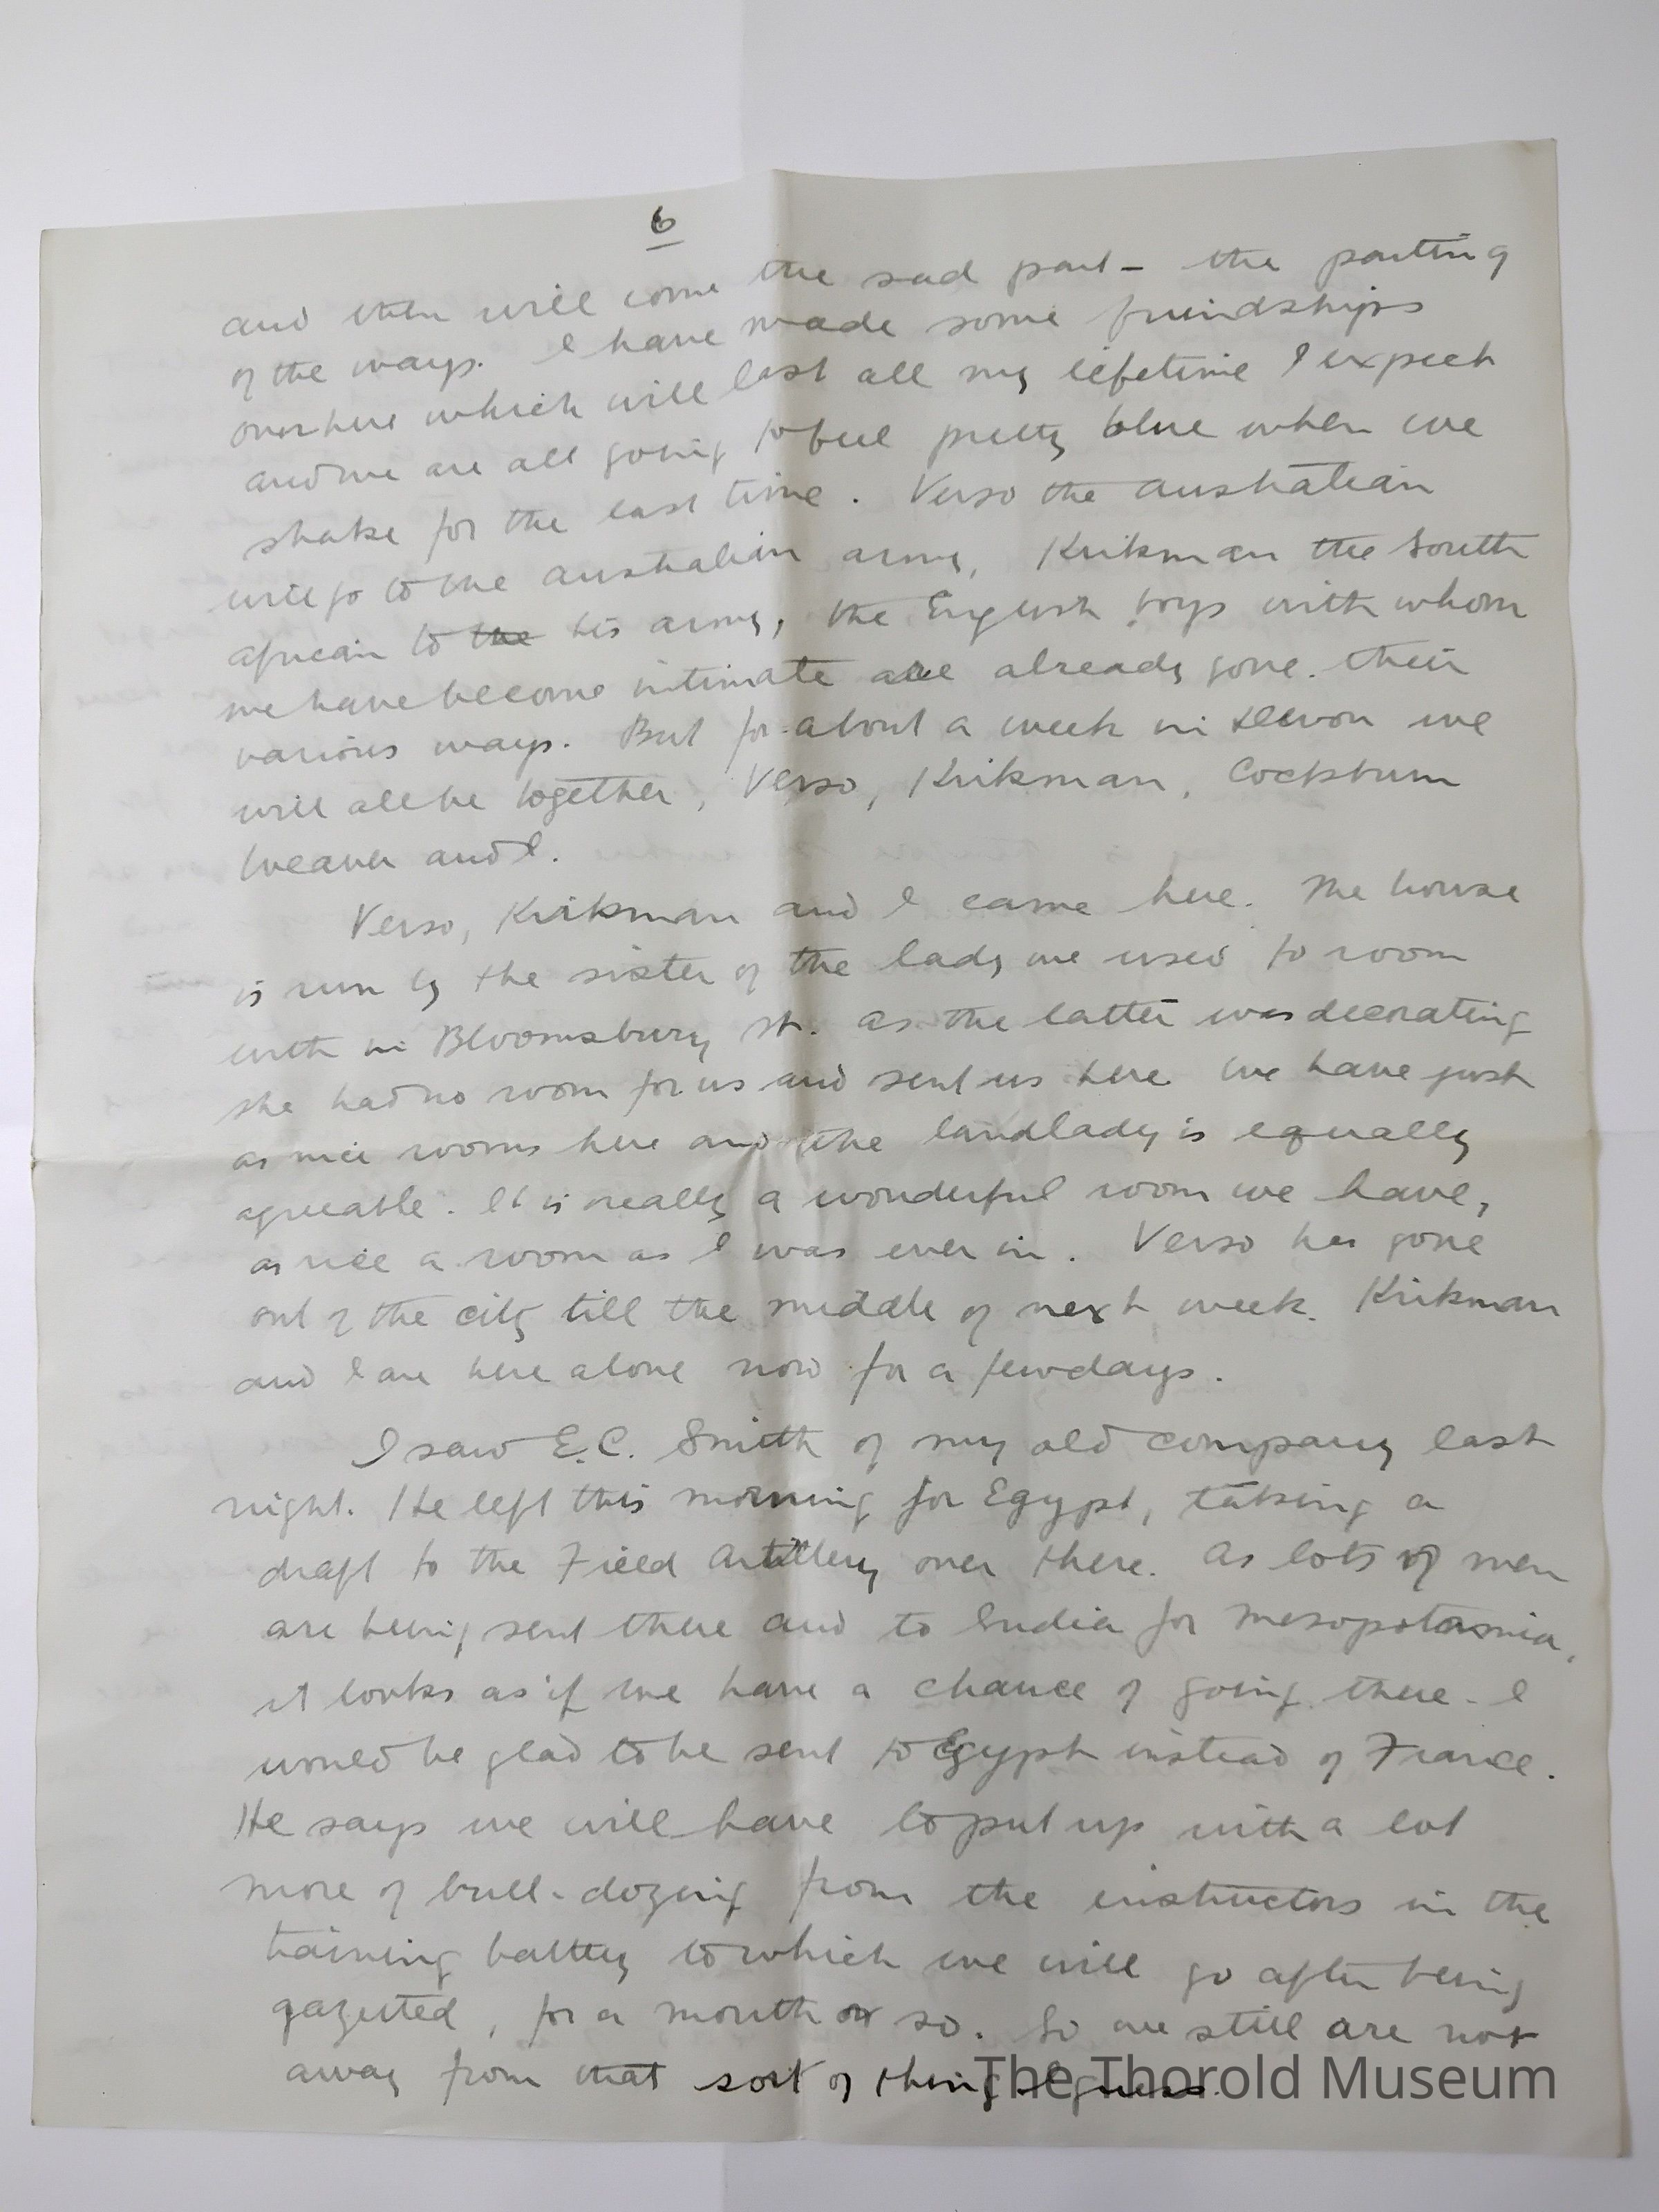 6
and then will come the sad part - the parting
of the ways. I have made some friendships
over here which will last all my lifetime I expect
and we are all going to feel pretty blue when we
shake for the last time. Verso the Australian
will go to the Australian army, Kirkman the South
African to the his army, the English boys with whom
we have become intimate are already gone their
various ways. But for about a week in Devon we
will all be together, Verso, Kirkman, Cockburn
Weaver and I.
Verso, Kirkman and I came here. The house
is run by the sister of the lady we used to room
with in Bloomsbury St. As the latter was decorating
she had no room for us and sent us here We have just
as nice rooms here and the landlady is equally
agreeable. It is really a wonderful room we have,
as nice a room as I was ever in. Verso has gone
out of the city till the middle of next week. Kirkman
and I are here alone now for a few days.
I saw E.C. Smith of my old company last
night. He left this morning for Egypt, taking a
draft to the Field Artillery over there. As lots of men
are being sent there and to India for Mesopotamia,
it looks as if we have a chance of going there. I
would be glad to be sent to Egypt instead of France.
He says we will have to put up with a lot
more of bull-dozing from the instructors in the
training battery to which we will go after being
gazetted, for a month or so. So we still are not
away from that sort of thing I guess.
The Thorold Museum